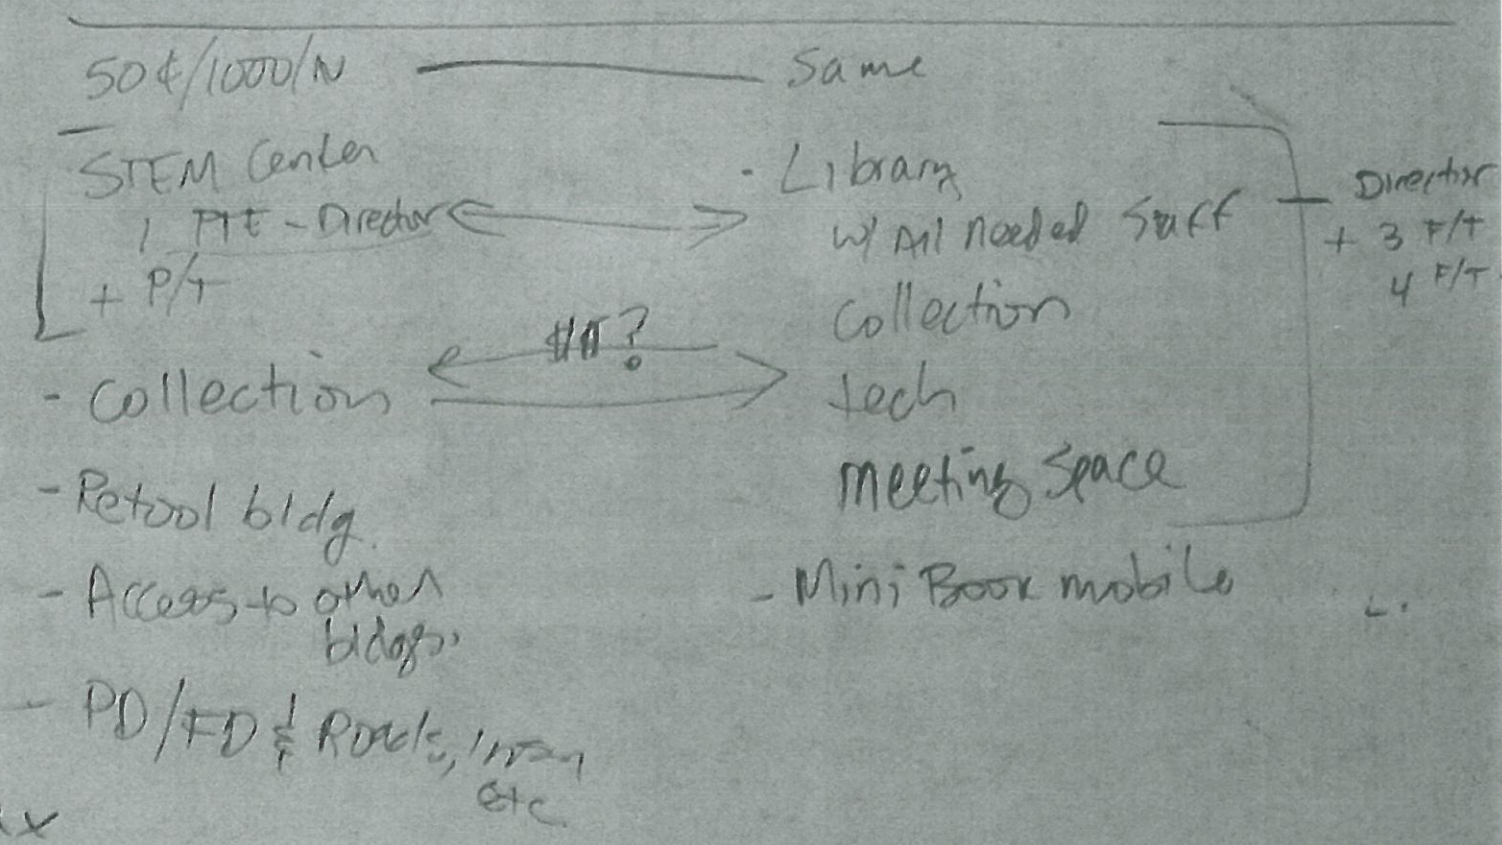 50¢/1000/N Same
STEM Center
1 - Director
+ P/T
- Collection
- Retool bldg.
- Access to other
bldgs.
- PD/FD & Roads,
etc
- Library
w/ All needed Staff
Collection
tech
meeting space
- Mini Book mobile
Director
+ 3 F/T
4 F/T